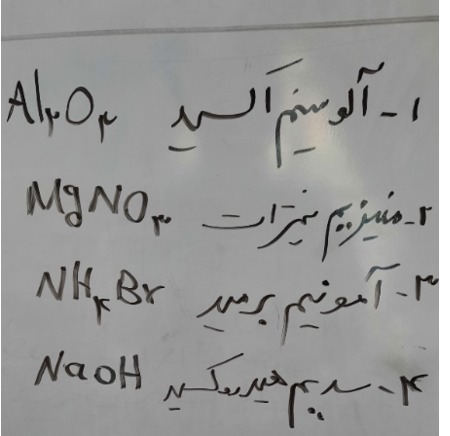 ۱- آلومینیم اکسید Al۲O۳
۲- منیزیم نیترات MgNO۳
۳- آمونیم برمید NH۴Br
۴- سدیم هیدروکسید NaOH